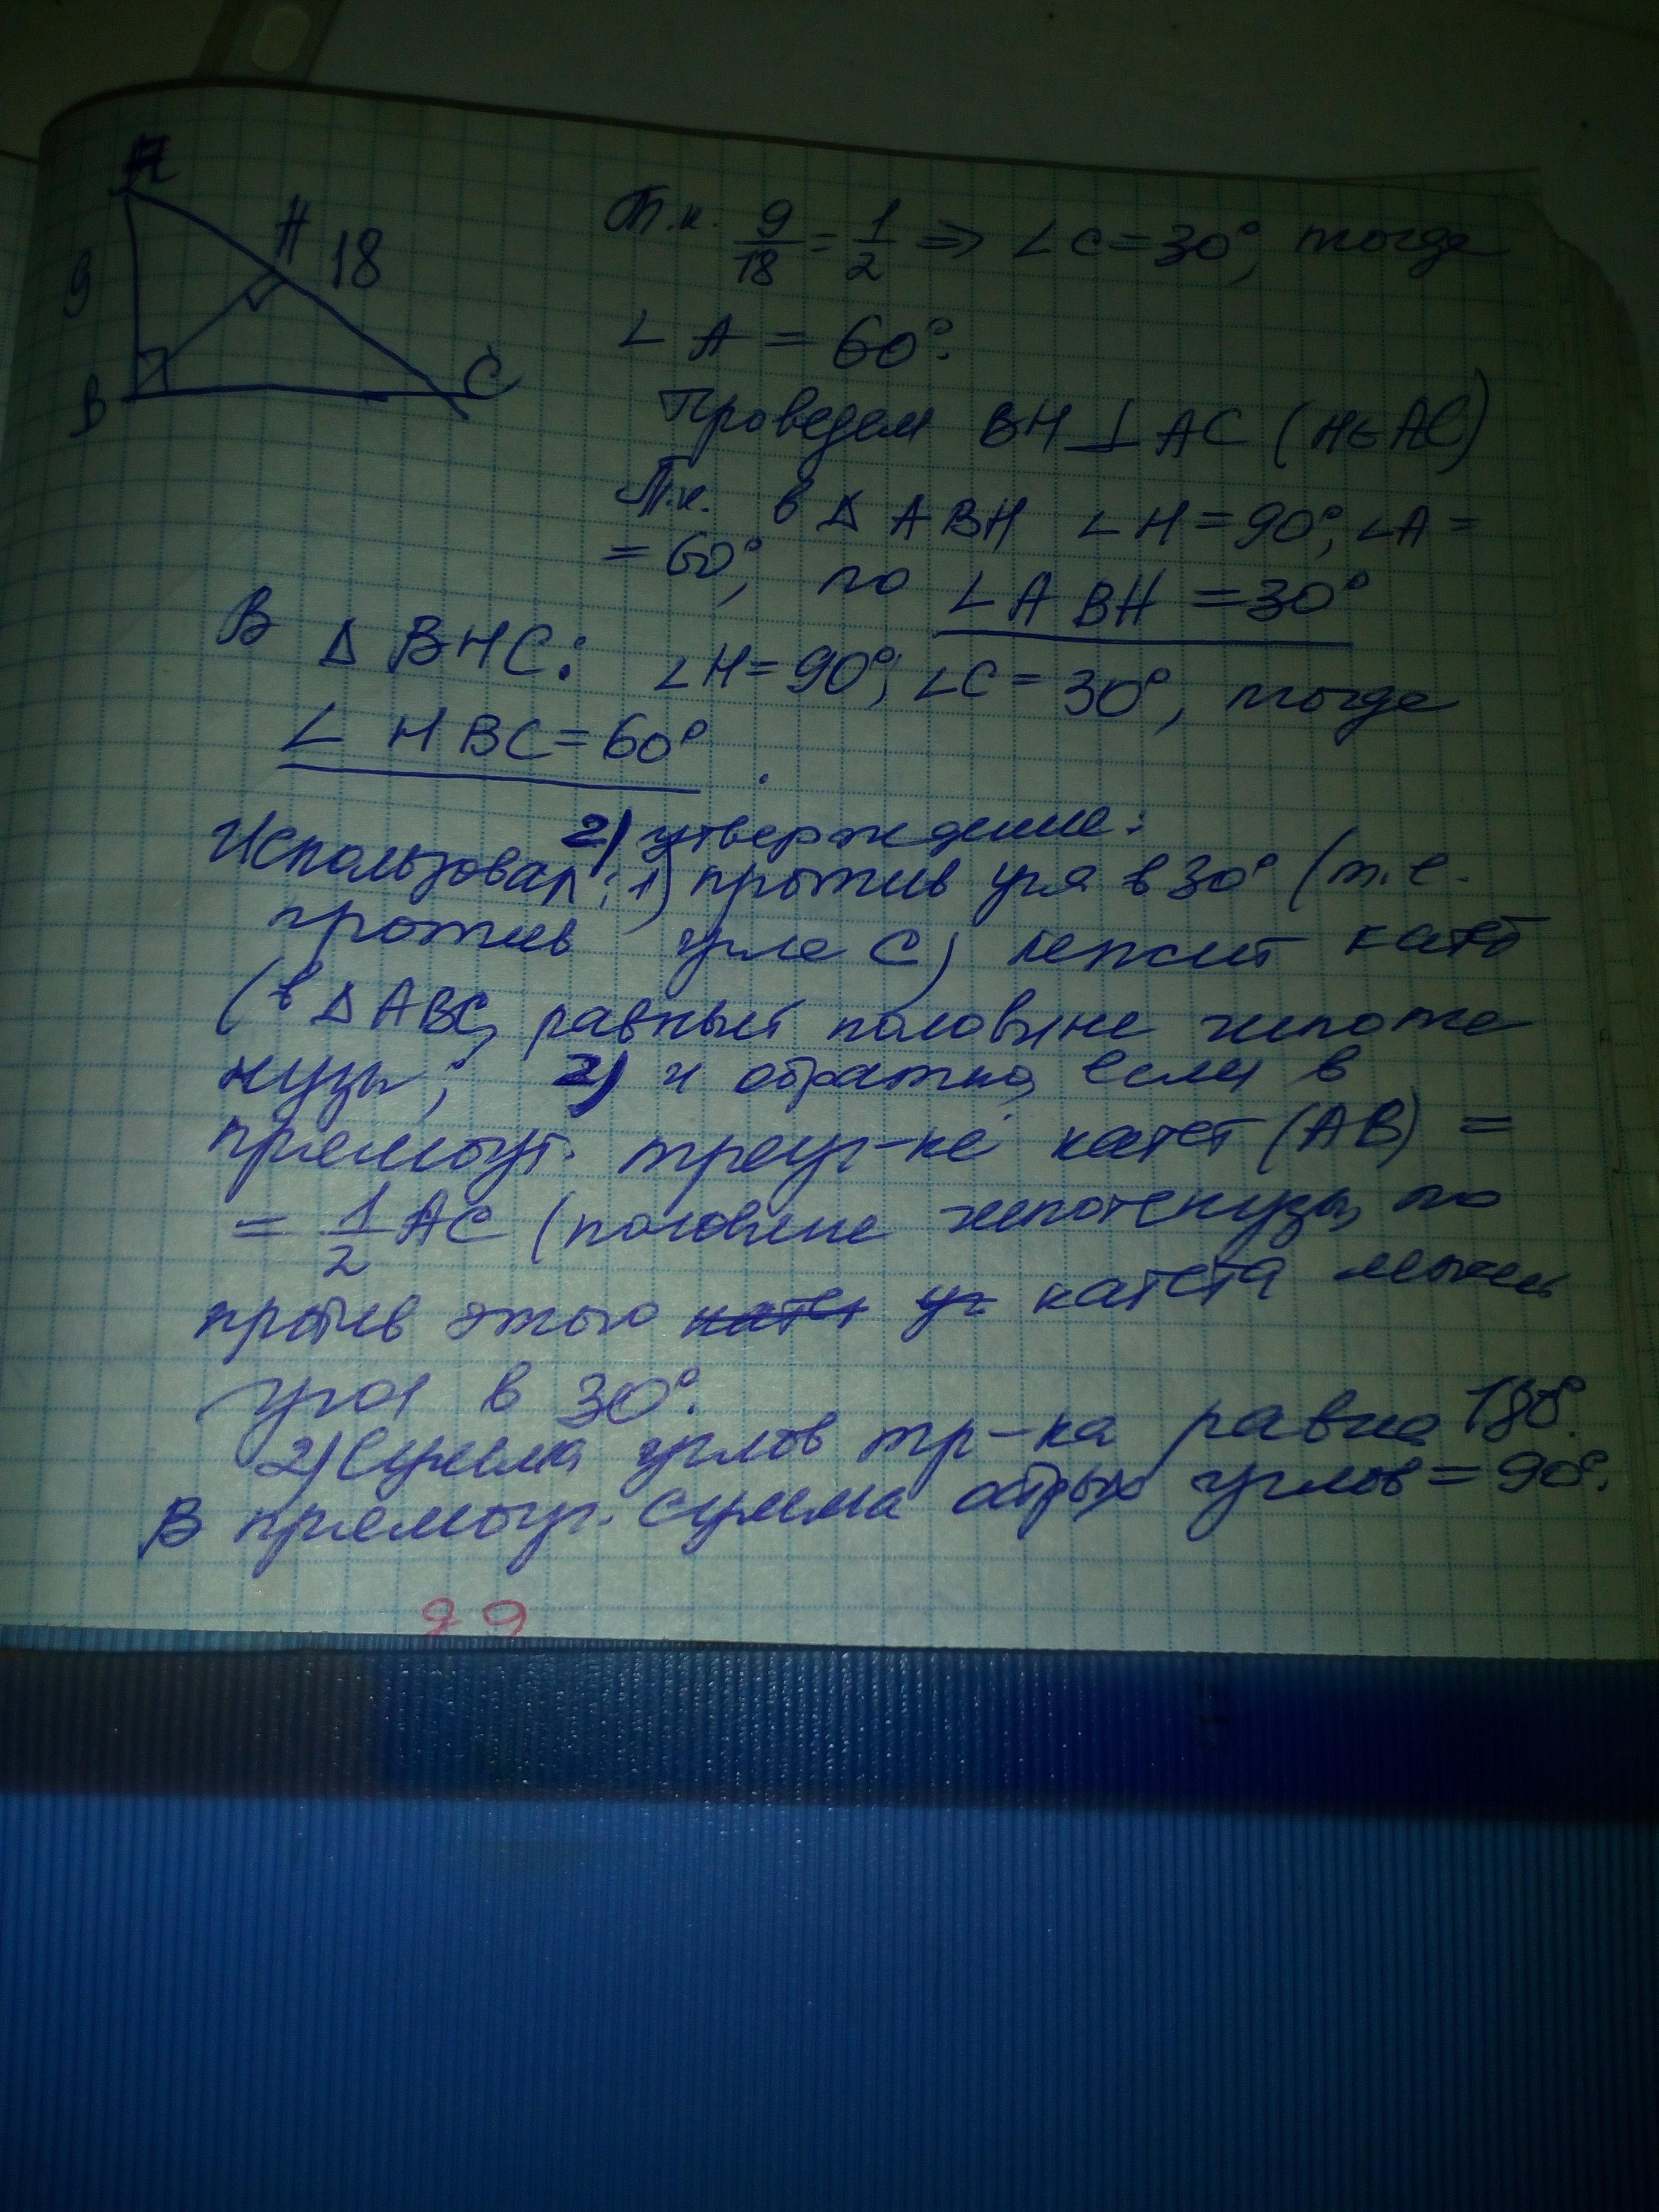 A
H
18
9
B
C
Т.к. 9/18 = 1/2 => ∠C = 30°, тогда
∠A = 60°.
Проведем BH ⊥ AC (H∈AC)
Т.к. в Δ ABH ∠H = 90°, ∠A =
= 60°, то ∠ABH = 30°
В Δ BHC: ∠H = 90°, ∠C = 30°, тогда
∠HBC = 60°.
2) утверждение:
Использовал: 1) против угла в 30° (т.е.
против угла C) лежит катет
(в Δ ABC, равный половине гипоте
нузы; 2) и обратно, если в
прямоуг. треуг-ке катет (AB) =
= 1/2 AC (половине гипотенузы, то
против этого катета лежит
угол в 30°.
2) Сумма углов тр-ка равна 180°.
В прямоуг. сумма острых углов = 90°.